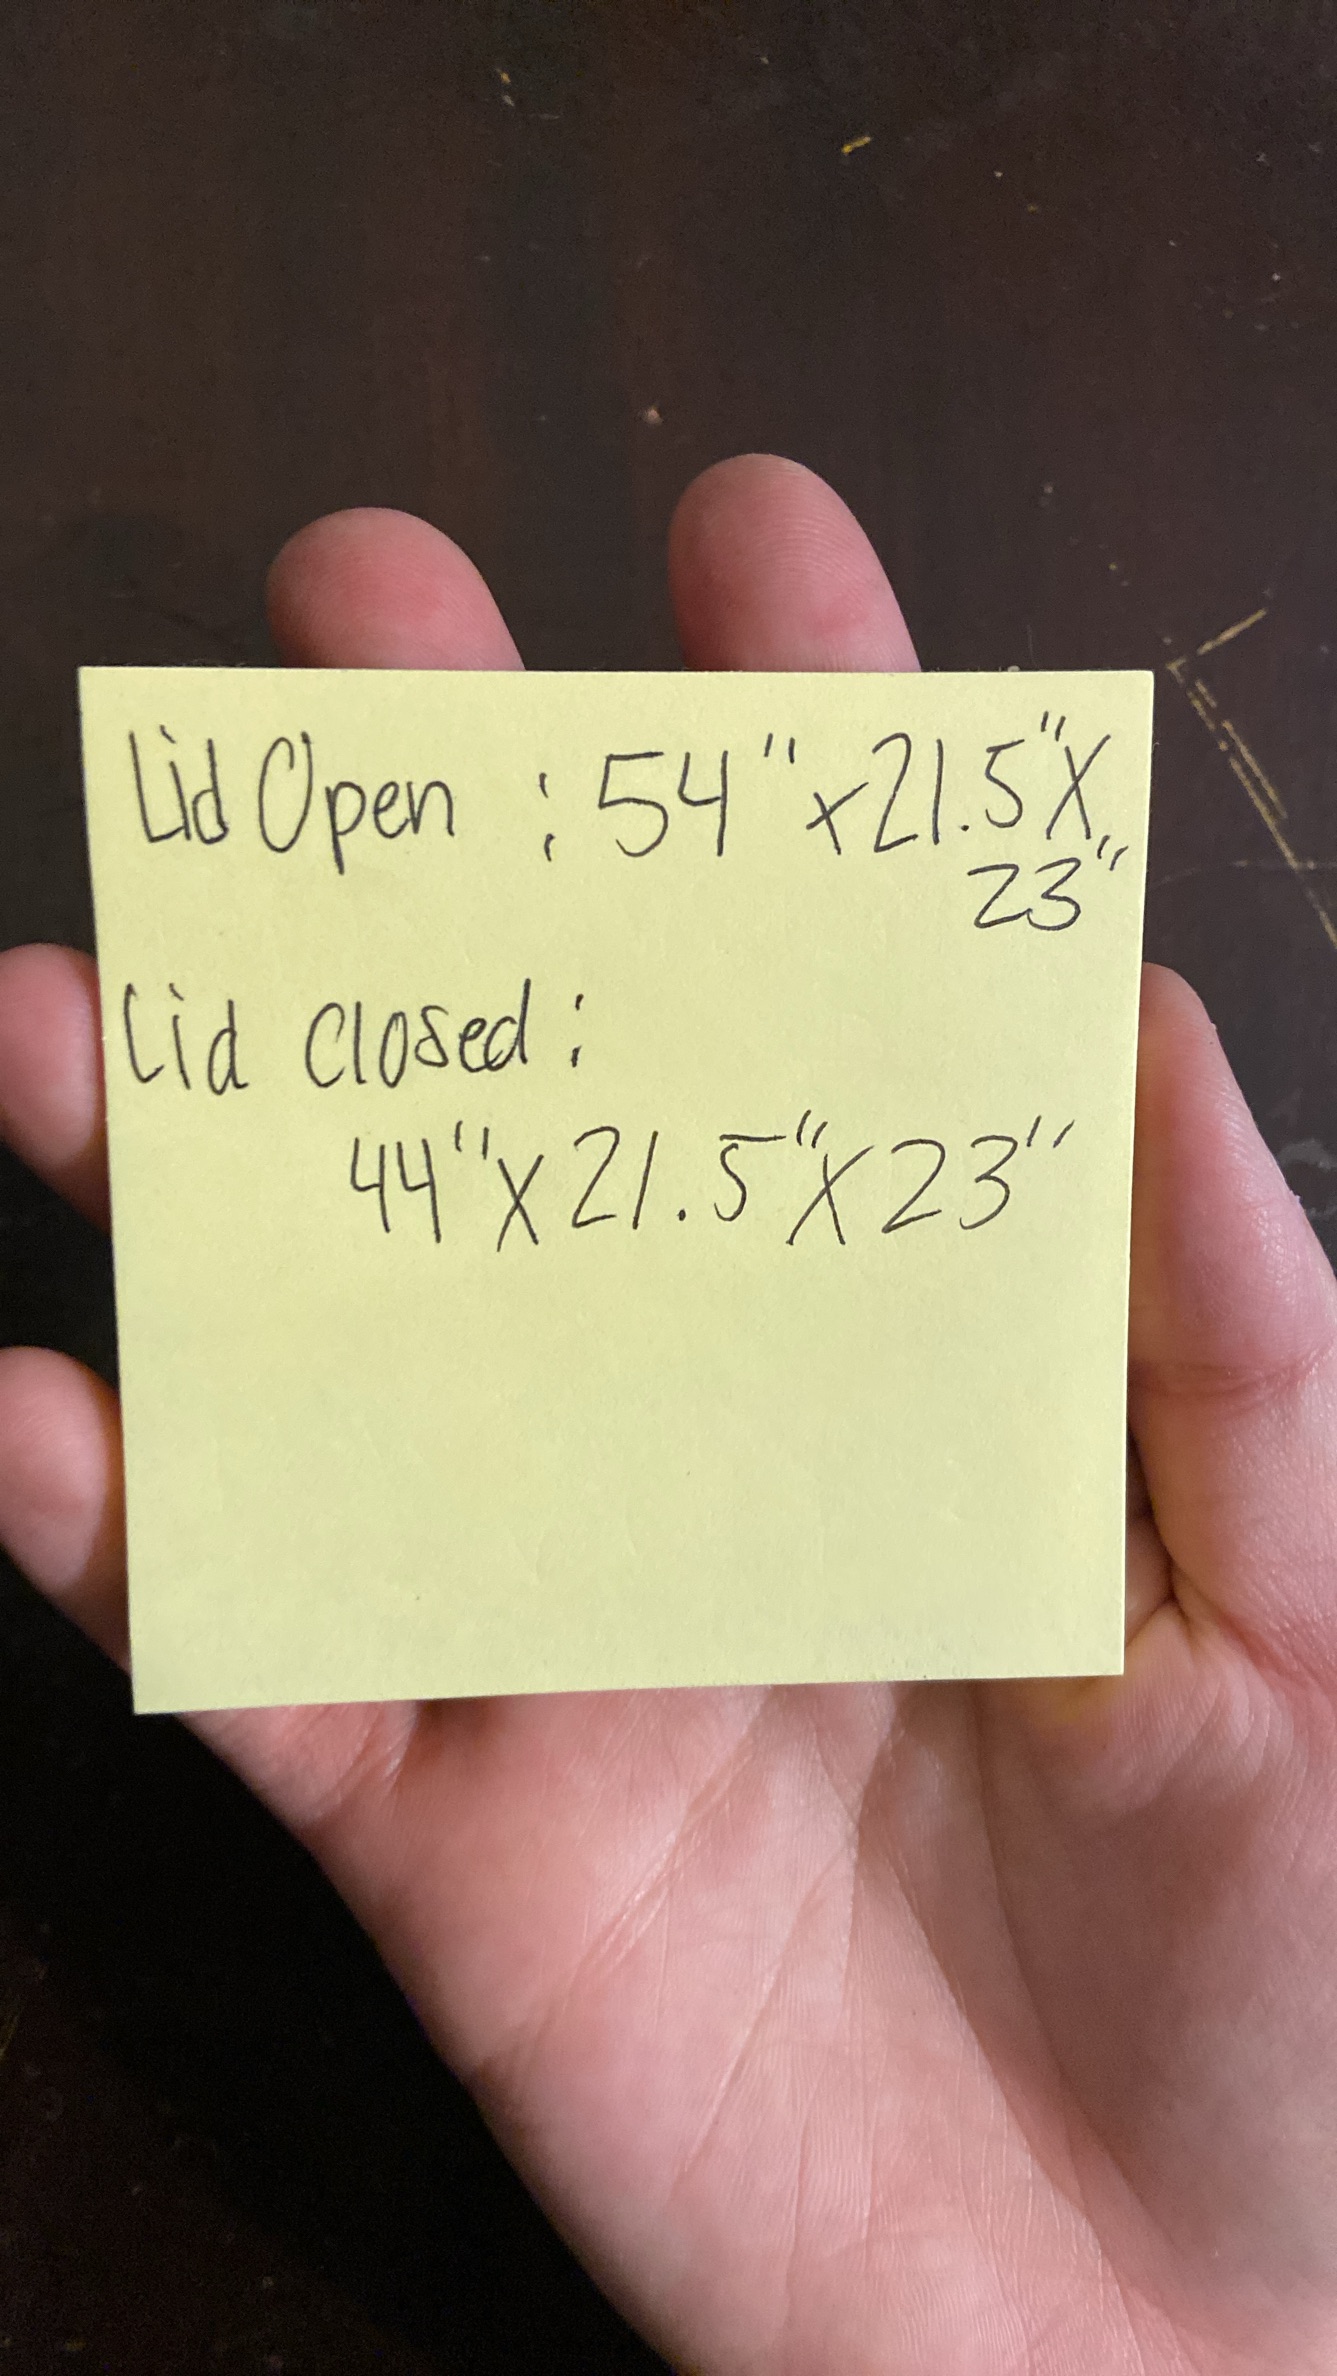 Lid Open : 54" x 21.5" X
23"
Lid Closed :
44" X 21.5" X 23"